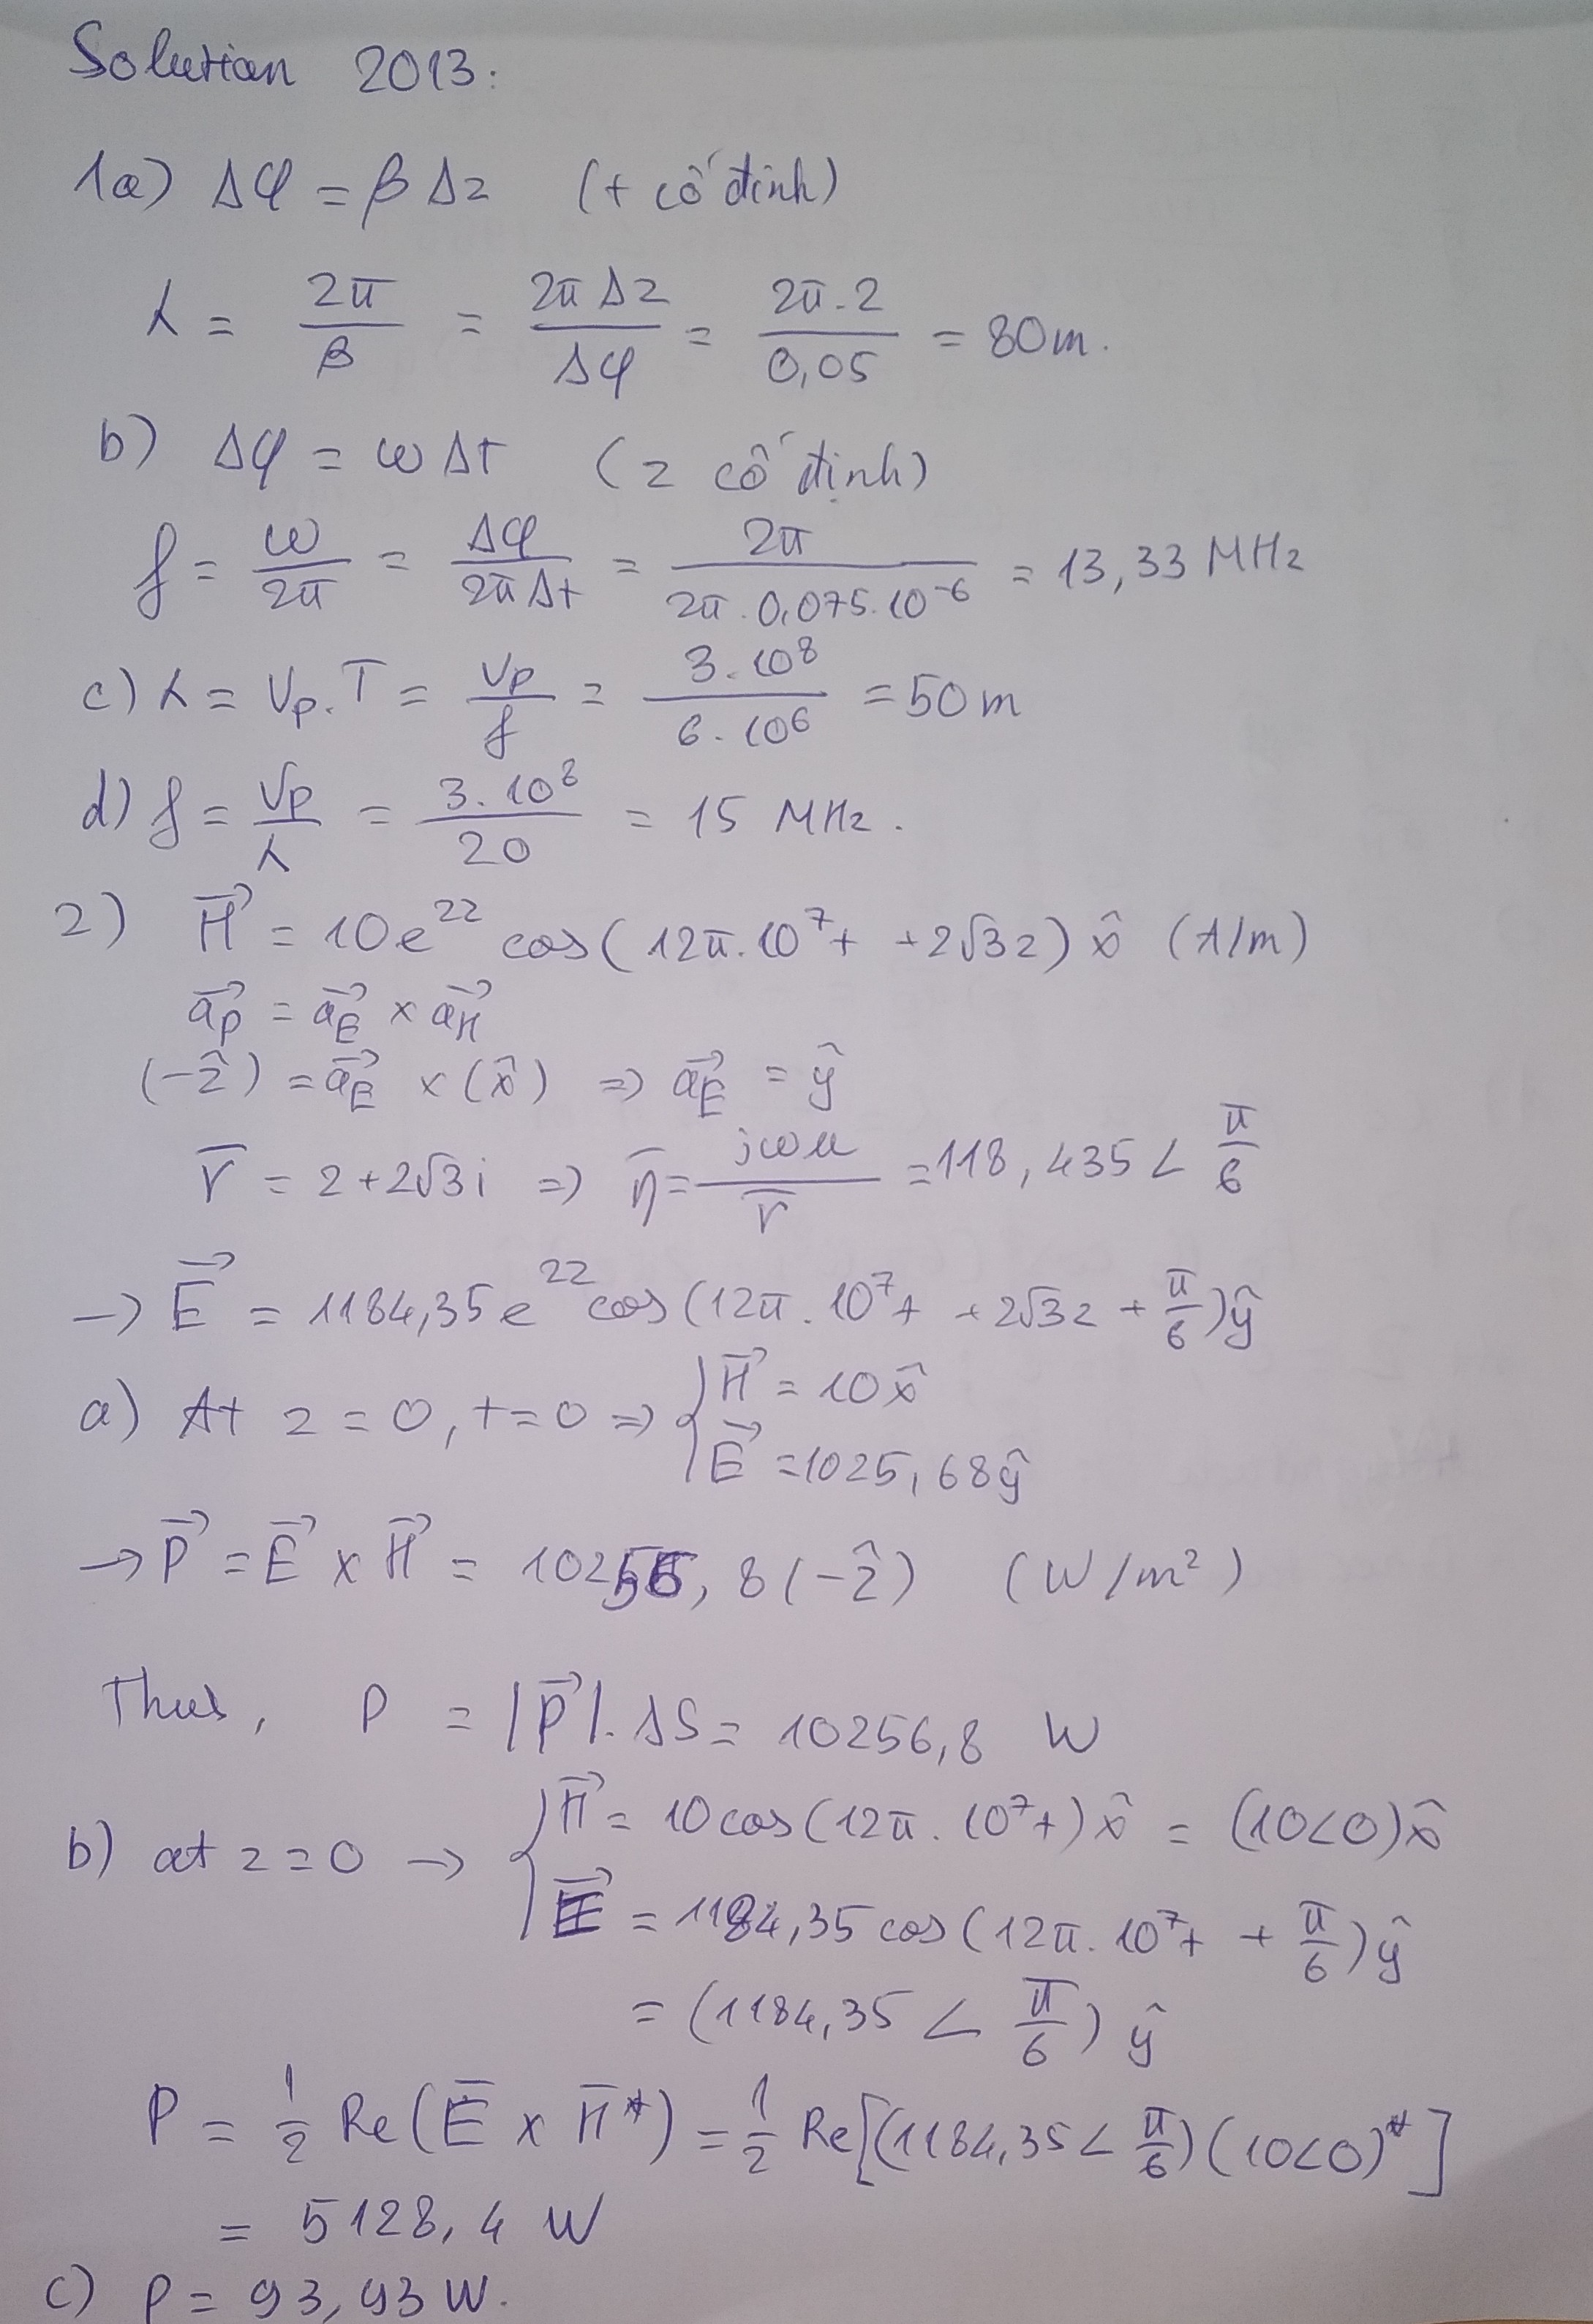 Solution 2013:
1a) Δφ = β Δz (t cố định)
λ = 2π/β = 2π Δz/Δφ = 2π.2/0,05 = 80m.
b) Δφ = ω Δt (z cố định)
f = ω/2π = Δφ/2π Δt = 2π/2π.0,075.10^-6 = 13,33 MHz
c) λ = Vp.T = Vp/f = 3.10^8/6.10^6 = 50m
d) f = Vp/λ = 3.10^8/20 = 15 MHz.
2) H⃗ = 10e^2z cos(12π.10^7t + 2√3z) x̂ (A/m)
a⃗_P = a⃗_E × a⃗_H
(-ẑ) = a⃗_E × (x̂) => a⃗_E = ŷ
γ̅ = 2+2√3i => η̅ = jωμ/γ̅ = 118,435∠π/6
→ E⃗ = 1184,35e^2z cos(12π.10^7t + 2√3z + π/6)ŷ
a) At z = 0, t=0 => { H⃗ = 10x̂
E⃗ = 1025,68ŷ
→ P⃗ = E⃗ × H⃗ = 10256,8(-ẑ) (W/m²)
Thus, P = |P⃗|.ΔS = 10256,8 W
b) at z=0 → { H⃗ = 10cos(12π.10^7t)x̂ = (10∠0)x̂
E⃗ = 1184,35cos(12π.10^7t + π/6)ŷ
= (1184,35∠π/6)ŷ
P = 1/2 Re(E̅ × H̅*) = 1/2 Re[(1184,35∠π/6)(10∠0)*]
= 5128,4 W
c) P = 93,93W.